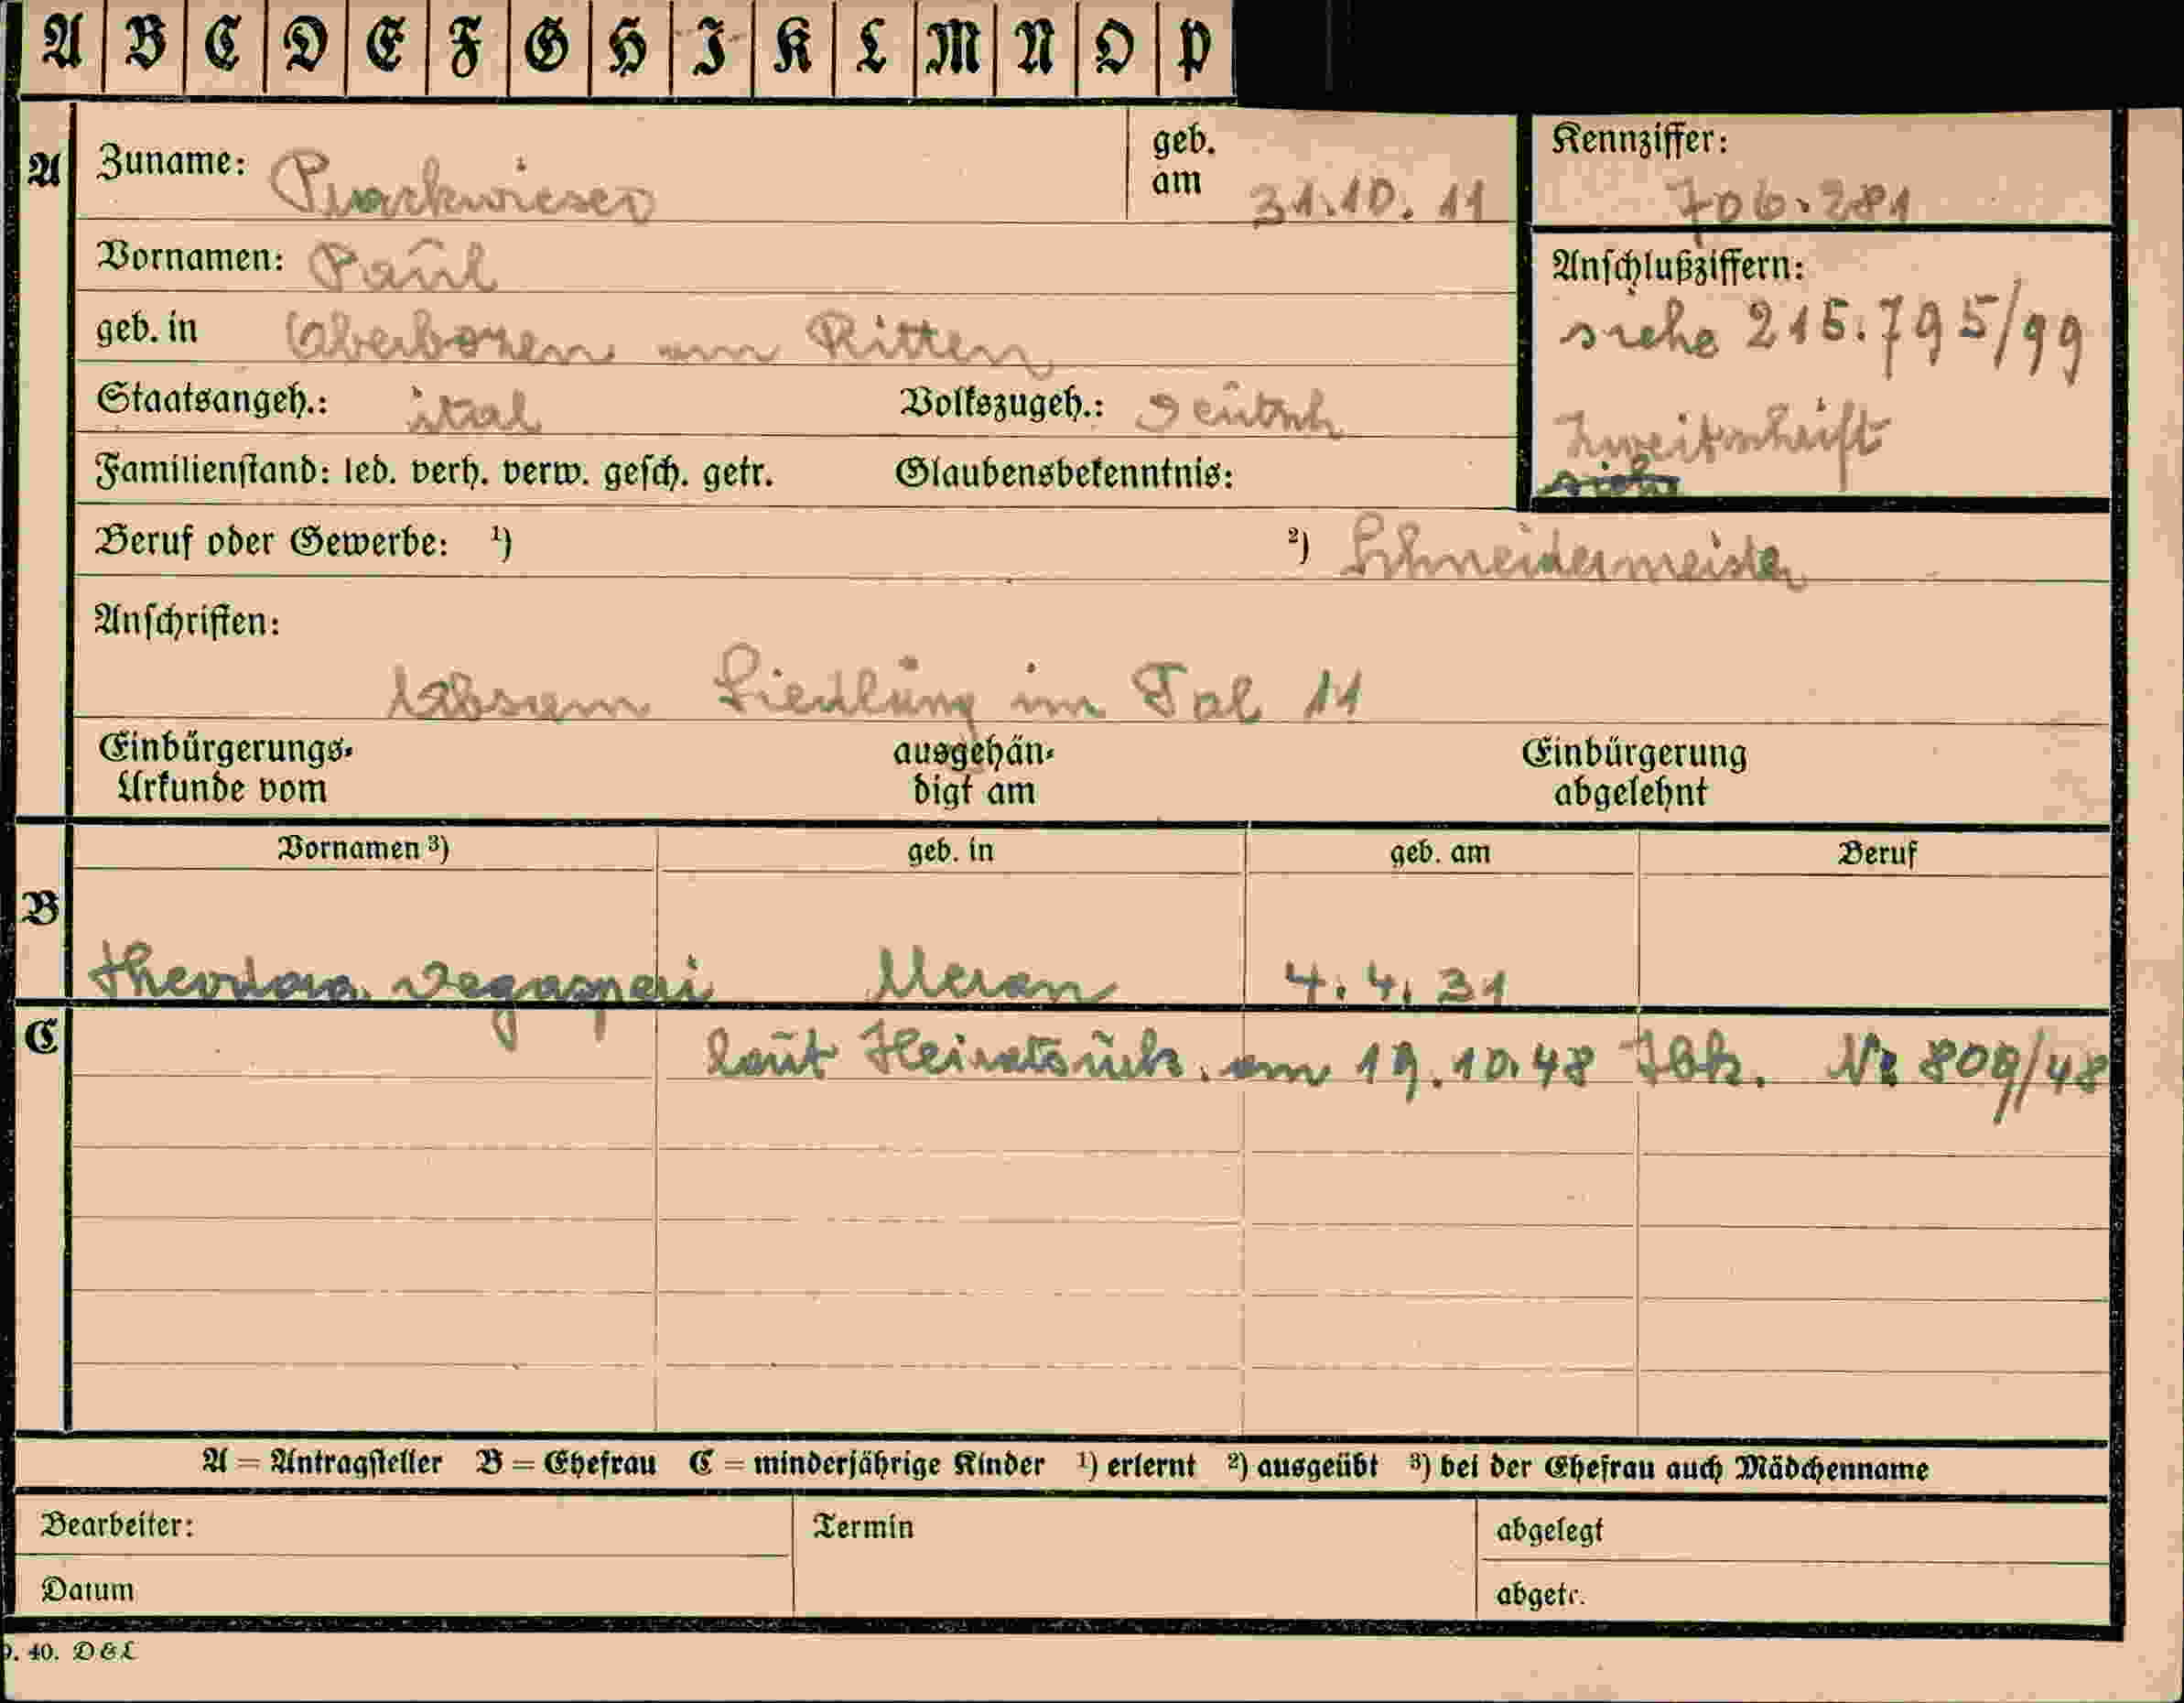 A B C D E F G H I K L M N O P
A Zuname: Prackwieser geb. am 31.10.11 Kennziffer: 706.281
Vornamen: Paul
geb. in Oberbozen am Ritten Anschlußziffern: siehe 215.795/99
Staatsangeh.: ital Volkszugeh.: Deutsch Zweitschrift
Familienstand: led. verh. verw. gesch. getr. Glaubensbekenntnis: siehe
Beruf oder Gewerbe: ¹) ²) Schneidermeister
Anschriften:
Absam Siedlung im Tal 11
Einbürgerungs- ausgehän- Einbürgerung
Urkunde vom digt am abgelehnt
Vornamen ³) geb. in geb. am Beruf
B
Theodora Degasperi Meran 4.4.31
C laut Heiratsurk. am 19.10.48 Ibk. Nr 809/48
A = Antragsteller B = Ehefrau C = minderjährige Kinder ¹) erlernt ²) ausgeübt ³) bei der Ehefrau auch Mädchenname
Bearbeiter: Termin abgelegt
Datum abgetr.
9. 40. D&L